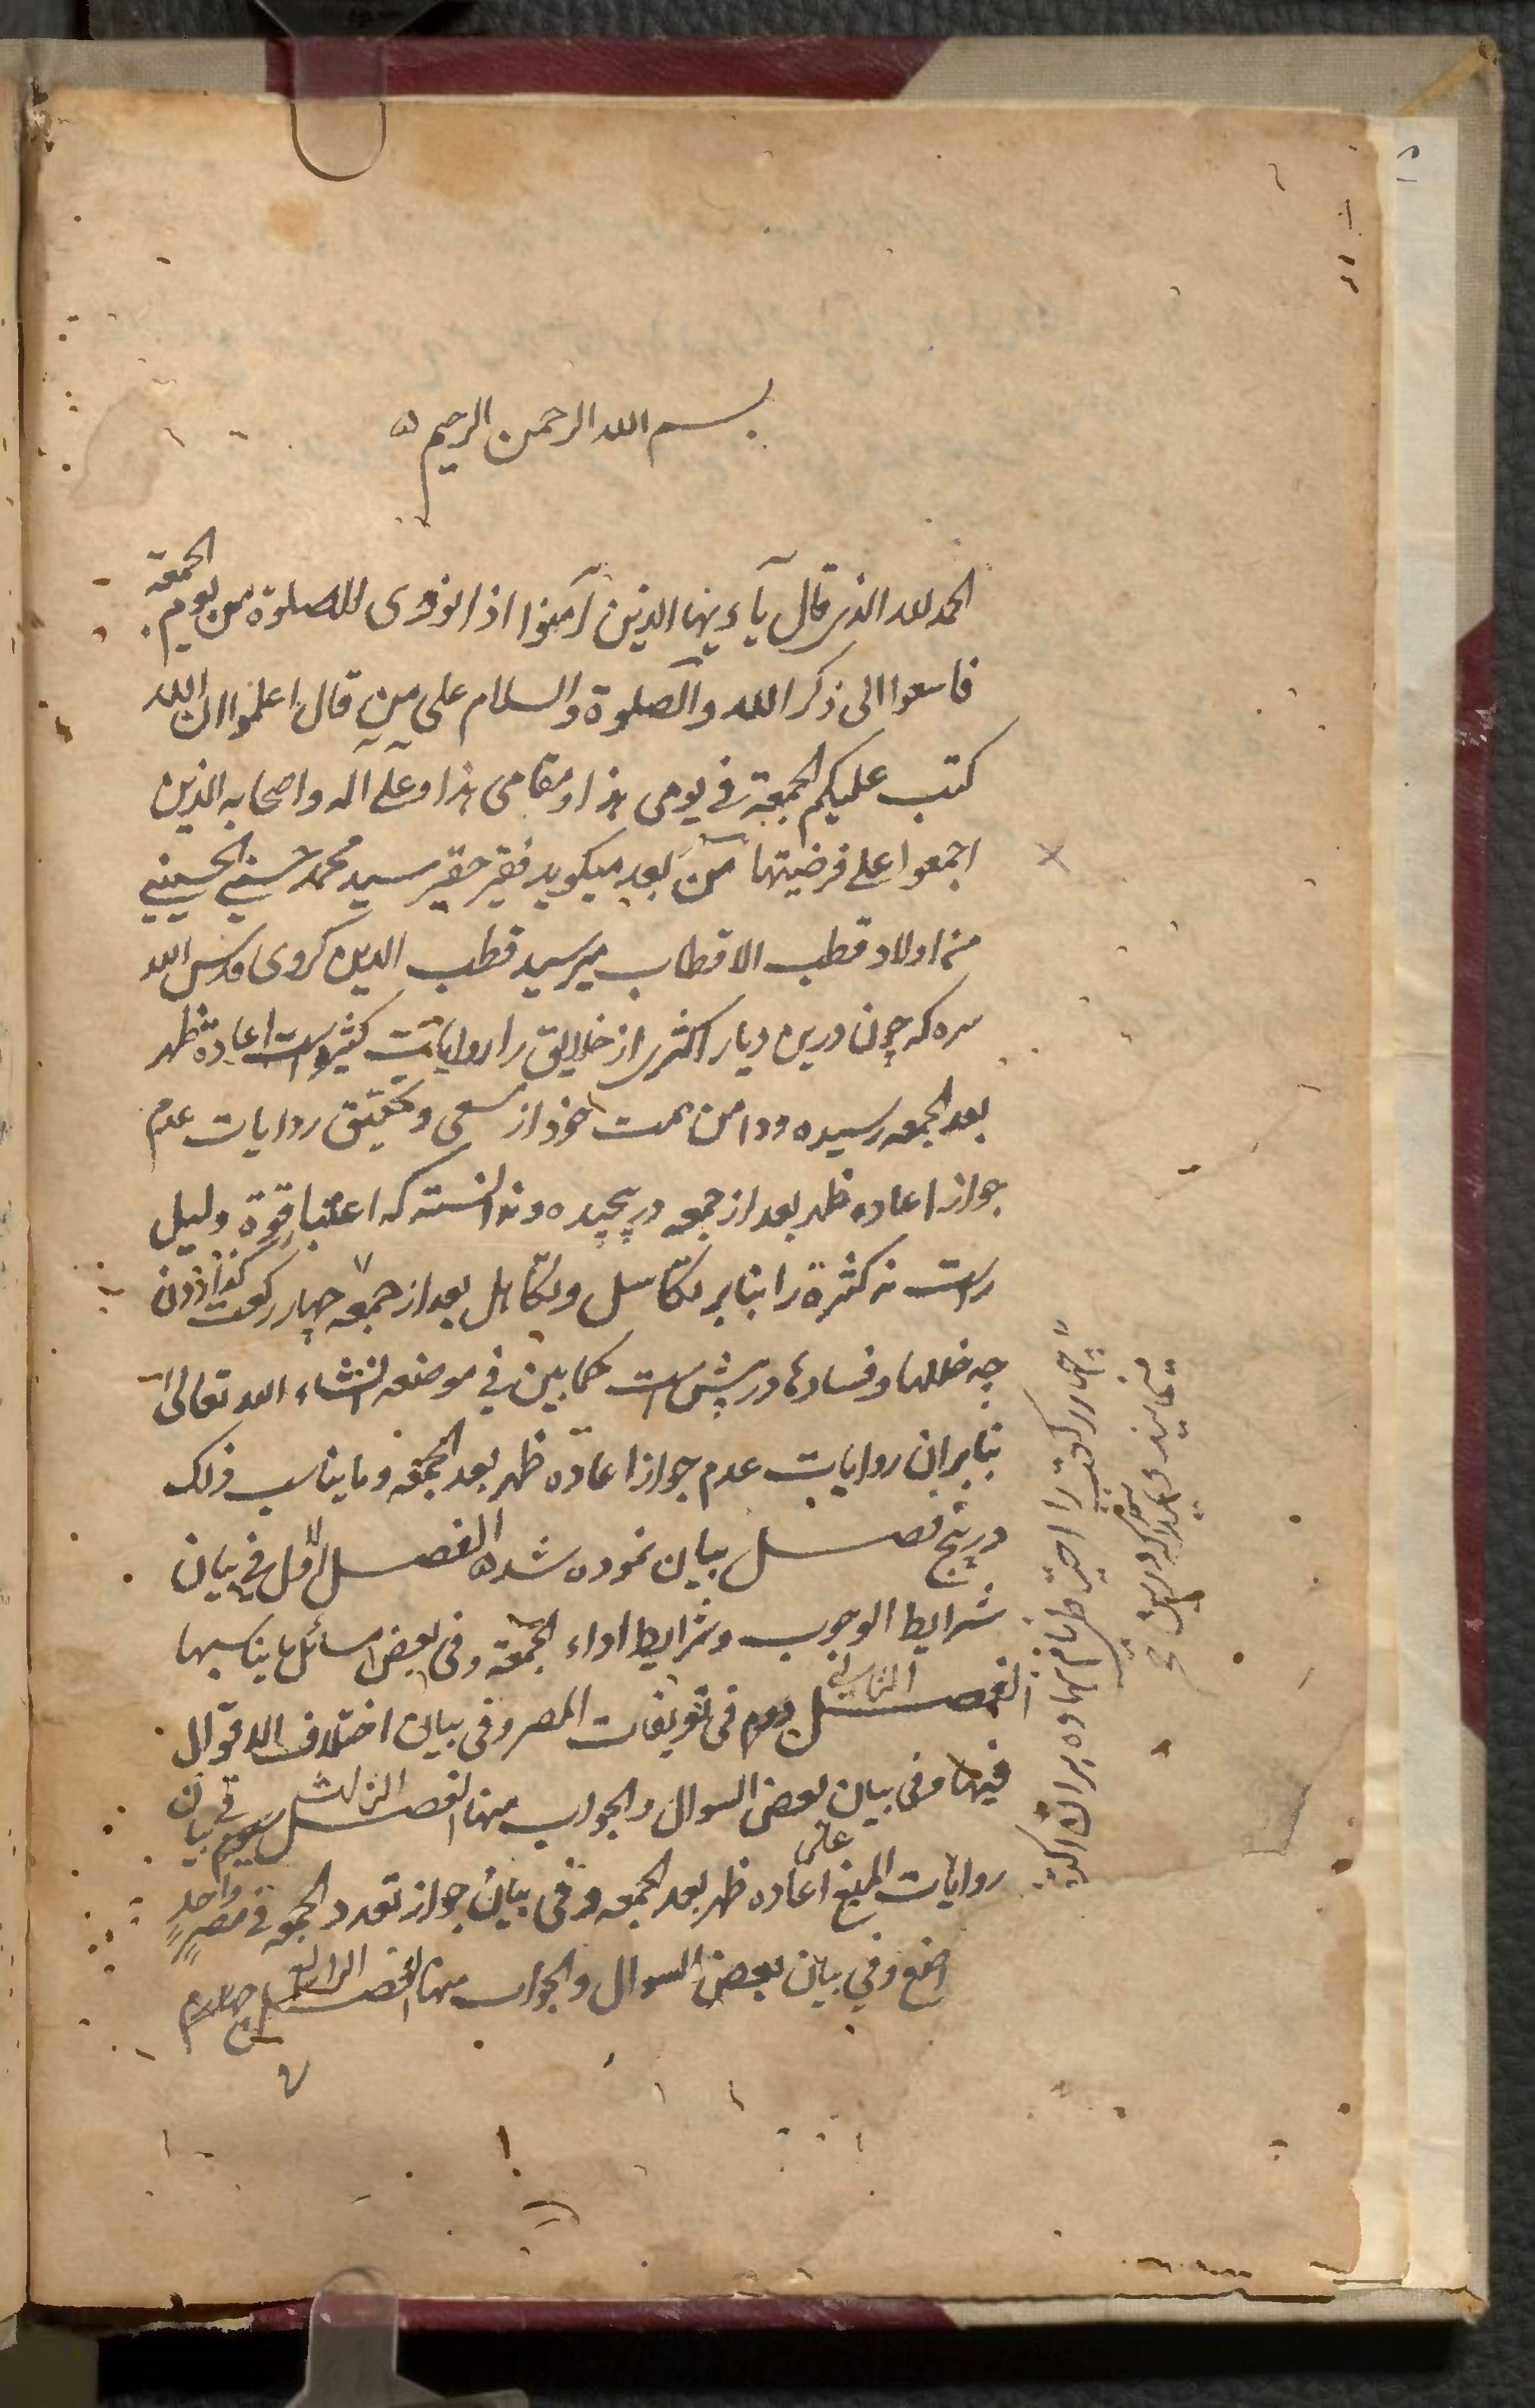 بسم الله الرحمن الرحیم
الحمد لله الذی قال یآءیها الذین آمنوا اذا نودی للصلوة من یوم الجمعة
فاسعوا الی ذکر الله والصلوة والسلام علی من قال اعلموا ان الله
کتب علیکم الجمعة فی یومی هذا و مقامی هذا و علی آله واصحابه الذین
اجمعوا علی فرضیتها من بعد میکوید فقیر حقیر سید محمد حسنی الحسینی
من اولاد قطب الاقطاب میر سید قطب الدین کروی قدس الله
سره که چون درین دیار اکثری از خلایق را روایات کثیره است اعادة ظهر
بعد الجمعه رسیده و دامن همت خود از سعی و تحقیق روایات عدم
جواز اعاده ظهر بعد از جمعه در پیچیده و ندانسته که اعتبار قوة دلیل
راست نه کثرة را بنابر تکاسل و تکاهل بعد از جمعه چهار رکعت گذاردن
چه خللها و فسادها در پیش است کما بین فی موضعه انشاء الله تعالی
بنابران روایات عدم جواز اعاده ظهر بعد الجمعه وما یناسب ذلک
در پنج فصل بیان نموده شده الفصل الاول فی بیان
شرایط الوجوب و شرایط اداء الجمعة و فی بعض مسائل یناسبها
الفصل الثانی دوم فی تعریفات المصر و فی بیان اختلاف الاقوال
فیها و فی بیان بعض السوال والجواب منها الفصل الثالث سیوم فی بیان
روایات المنع علی اعاده ظهر بعد الجمعه و فی بیان جواز تعدد الجمعه فی مصر واحد
و فی بیان بعض السوال والجواب منها الفصل الرابع چهارم
چهار رکعت را